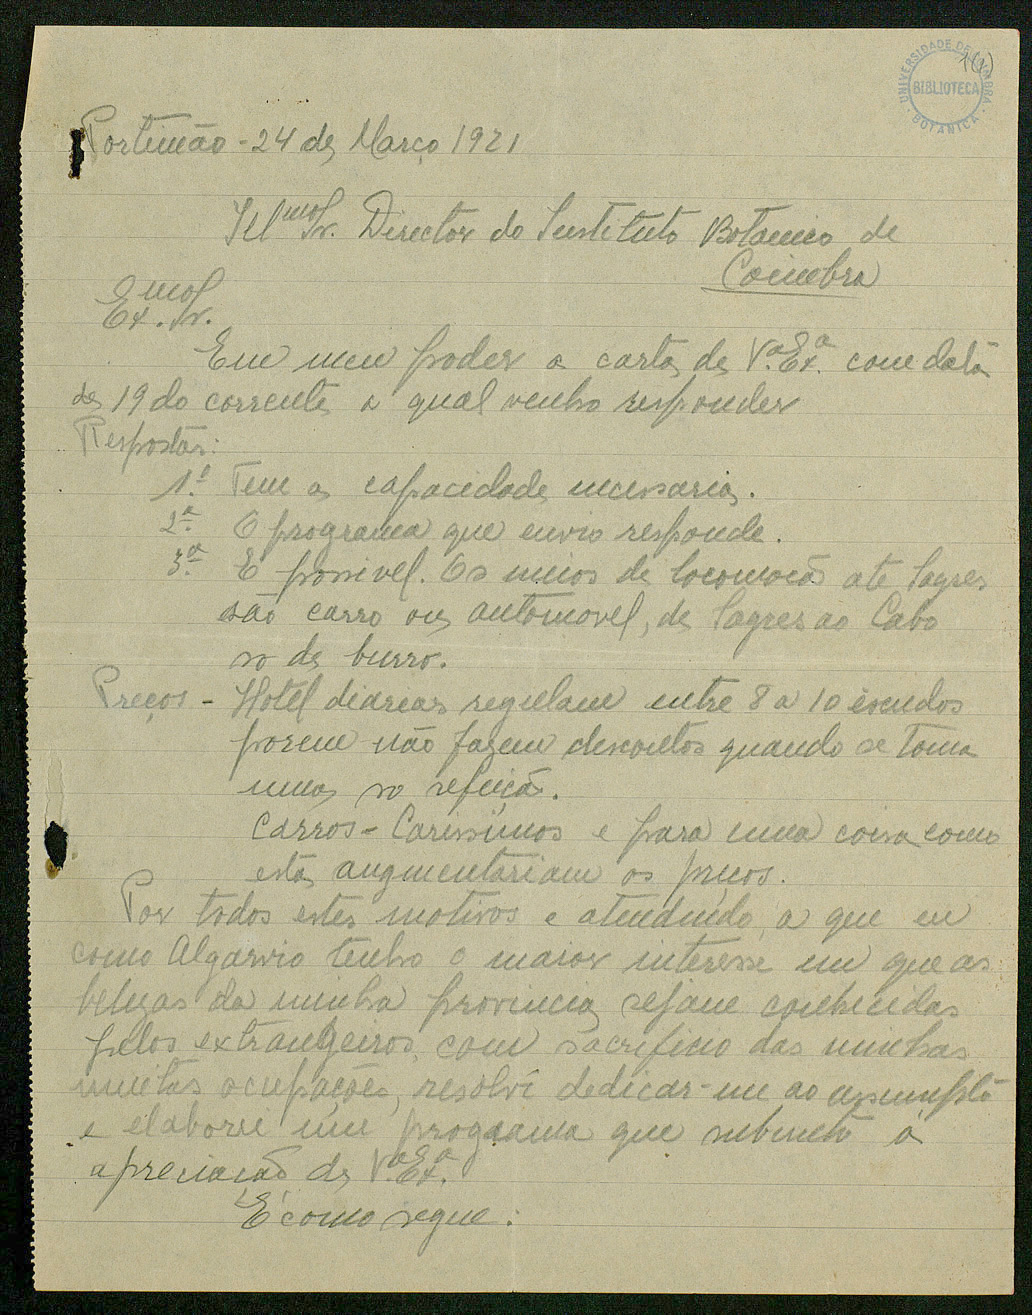 UNIVERSIDADE DE COIMBRA
BIBLIOTECA
BOTANICA
Portimão - 24 de Março 1921
Ill.mo Sr. Director do Instituto Botanico de
Coimbra
Ex.mo Sr.
Em meu poder a carta de V.ª Ex.ª com data
de 19 do corrente a qual venho responder
Respostas:
1.ª Tem a capacidade necessaria.
2.ª O programa que envio responde.
3.ª É possivel. Os meios de locomoção até Sagres
são carro ou automovel, de Sagres ao Cabo
so de burro.
Preços - Hotel diarias regulam entre 8 a 10 escudos
porem não fazem descontos quando se toma
uma so refeição.
Carros - Carissimos e para uma coisa como
esta augmentariam os preços.
Por todos estes motivos e atendendo, a que eu
como Algarvio tenho o maior interesse em que as
belezas da minha provincia sejam conhecidas
pelos extrangeiros, com sacrificio das minhas
muitas ocupações, resolvi dedicar-me ao assumpto
e elaborei um programa que submeto á
apreciacão de V.ª Ex.ª.
É como segue: